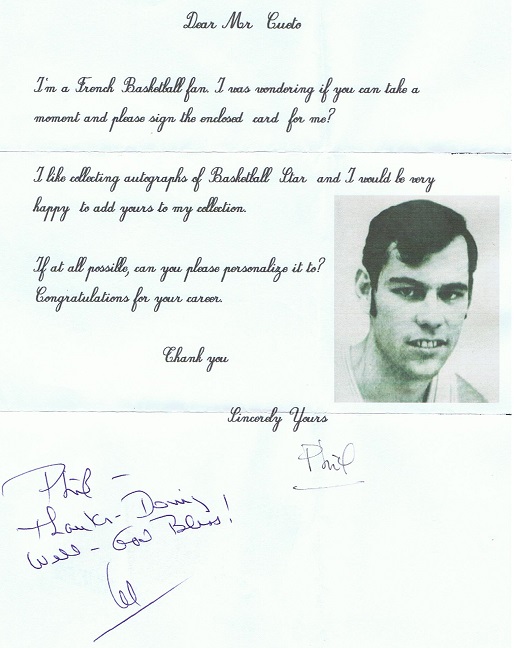 Dear Mr Cueto
I'm a French Basketball fan. I was wondering if you can take a
moment and please sign the enclosed card for me?
I like collecting autographs of Basketball Star and I would be very
happy to add yours to my collection.
If at all possible, can you please personalize it to?
Congratulations for your career.
Thank you
Sincerely Yours
Phil
Phil -
Thanks - Doing
Well - God Bless!
Al